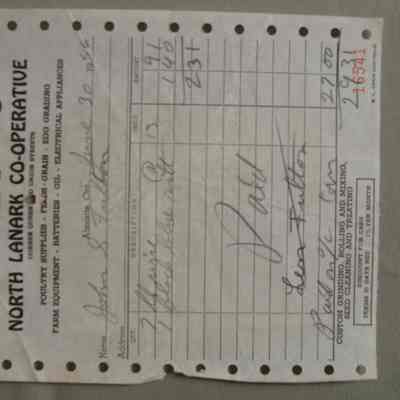 NORTH LANARK CO-OPERATIVE
CORNER QUEEN AND UNION STREETS
POULTRY SUPPLIES - FEED - GRAIN - EGG GRADING
FARM EQUIPMENT - BATTERIES - OIL - ELECTRICAL APPLIANCES
Almonte, Ont. June 30 1956
Name John S. Fulton
Address
QTY. DESCRIPTIONS PRICE AMOUNT
2 13 91
1 140
231
Paid
Len Fulton
Paid on 27 00
29 31
CUSTOM GRINDING, ROLLING AND MIXING,
SEED CLEANING AND TREATING
DISCOUNT FOR CASH
TERMS 30 DAYS NET - 1% PER MONTH
16541